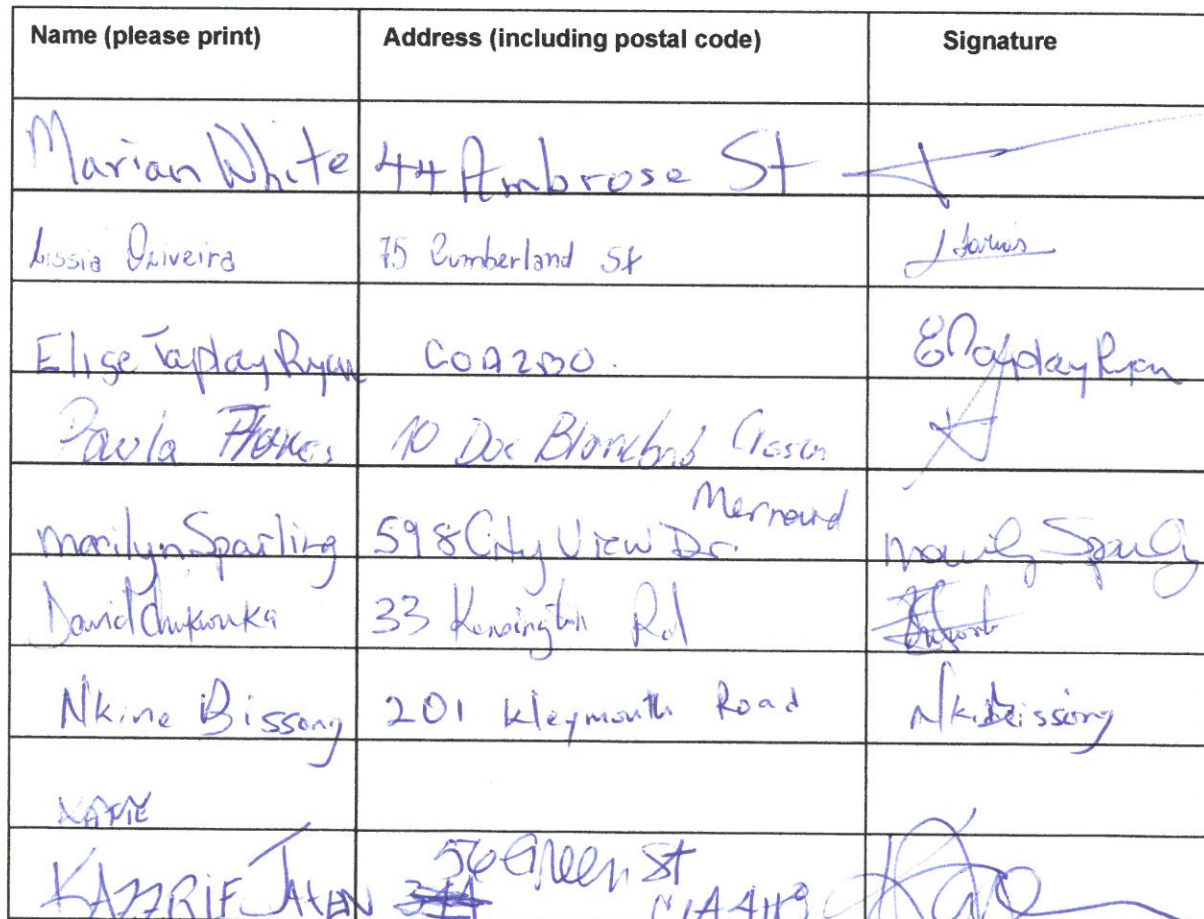 Name (please print) Address (including postal code) Signature
Marian White 44 Ambrose St
Lissia Oliveira 75 Cumberland St
Elise Tapday Ryan C0A2B0. ETapday Ryan
Paula 10 Doc Blanchard
Mermaid
Marilyn Sparling 598 City View Dr. Marily Sparling
David Chukwuka 33 Kensington Rd
Nkine Bissong 201 Weymouth Road Nkibissong
NAME
56 Green St
KAZZRIF JAVEN 344 C1A4H9